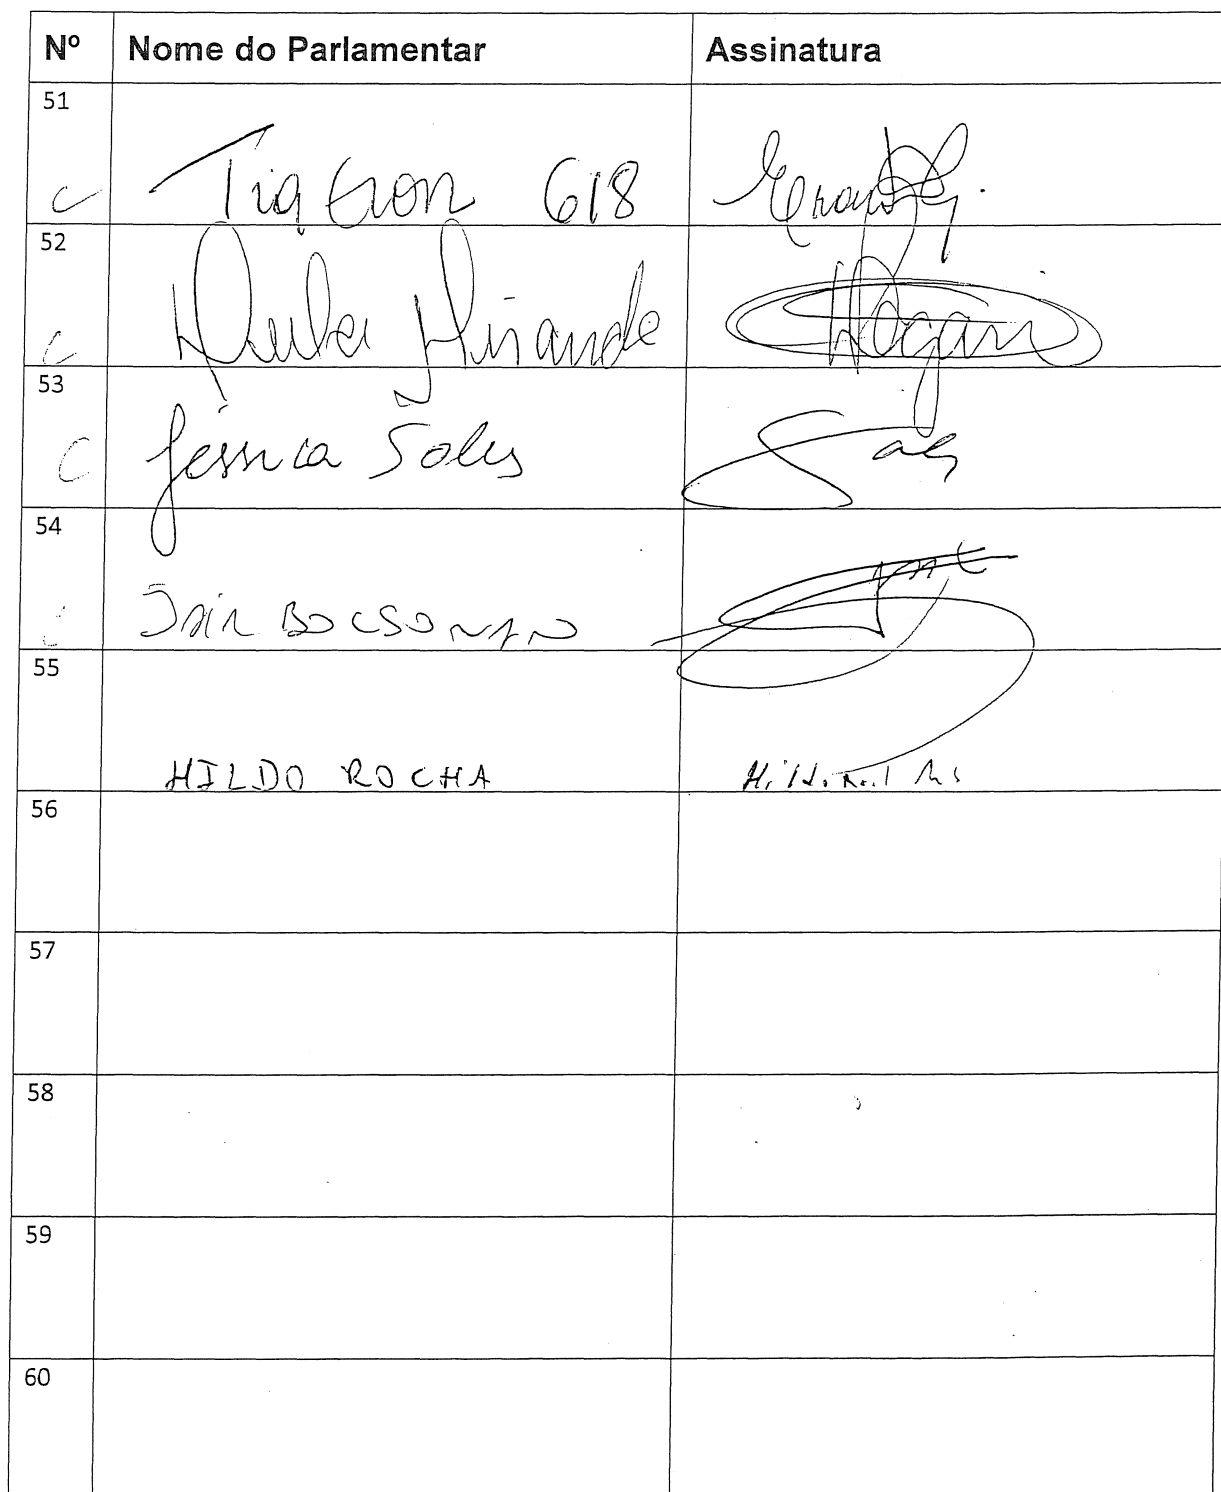 Nº Nome do Parlamentar Assinatura
51
Tia Eron 618
52
Dulce Miranda
53
Jéssica Sales Sales
54
JAIR BOLSONARO
55
HILDO ROCHA
56
57
58
59
60